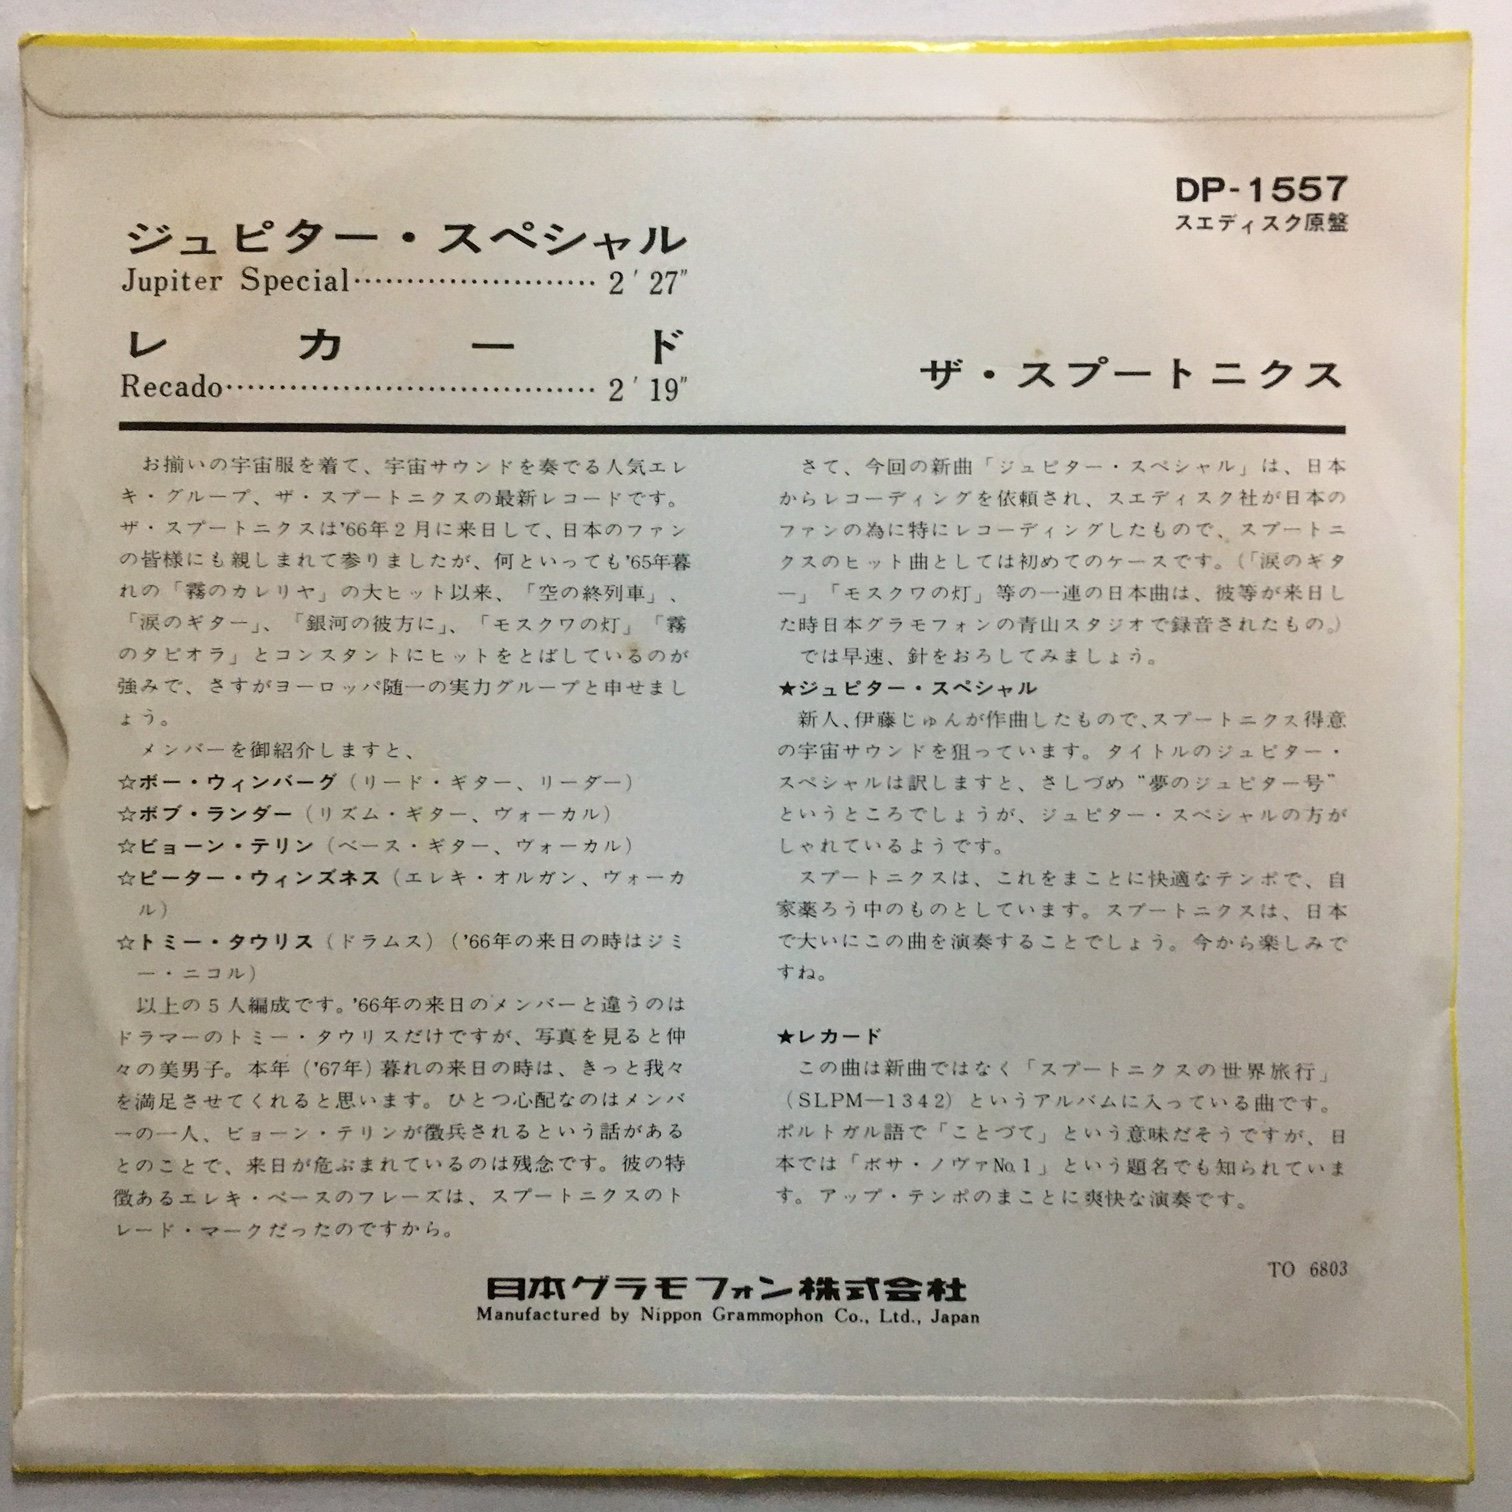 DP-1557
スエディスク原盤
ジュピター・スペシャル
Jupiter Special…………………… 2′27″
レカード
Recado……………………………… 2′19″
ザ・スプートニクス
お揃いの宇宙服を着て、宇宙サウンドを奏でる人気エレ
キ・グループ、ザ・スプートニクスの最新レコードです。
ザ・スプートニクスは'66年2月に来日して、日本のファン
の皆様にも親しまれて参りましたが、何といっても'65年暮
れの「霧のカレリヤ」の大ヒット以来、「空の終列車」、
「涙のギター」、「銀河の彼方に」、「モスクワの灯」「霧
のタピオラ」とコンスタントにヒットをとばしているのが
強みで、さすがヨーロッパ随一の実力グループと申せまし
ょう。
メンバーを御紹介しますと、
☆ボー・ウィンバーグ（リード・ギター、リーダー）
☆ボブ・ランダー（リズム・ギター、ヴォーカル）
☆ビョーン・テリン（ベース・ギター、ヴォーカル）
☆ピーター・ウィンズネス（エレキ・オルガン、ヴォーカ
ル）
☆トミー・タウリス（ドラムス）（'66年の来日の時はジミ
ー・ニコル）
以上の5人編成です。'66年の来日のメンバーと違うのは
ドラマーのトミー・タウリスだけですが、写真を見ると仲
々の美男子。本年（'67年）暮れの来日の時は、きっと我々
を満足させてくれると思います。ひとつ心配なのはメンバ
ーの一人、ビョーン・テリンが徴兵されるという話がある
とのことで、来日が危ぶまれているのは残念です。彼の特
徴あるエレキ・ベースのフレーズは、スプートニクスのト
レード・マークだったのですから。
さて、今回の新曲「ジュピター・スペシャル」は、日本
からレコーディングを依頼され、スエディスク社が日本の
ファンの為に特にレコーディングしたもので、スプートニ
クスのヒット曲としては初めてのケースです。（「涙のギタ
ー」「モスクワの灯」等の一連の日本曲は、彼等が来日し
た時日本グラモフォンの青山スタジオで録音されたもの。）
では早速、針をおろしてみましょう。
★ジュピター・スペシャル
新人、伊藤じゅんが作曲したもので、スプートニクス得意
の宇宙サウンドを狙っています。タイトルのジュピター・
スペシャルは訳しますと、さしづめ“夢のジュピター号”
というところでしょうが、ジュピター・スペシャルの方が
しゃれているようです。
スプートニクスは、これをまことに快適なテンポで、自
家薬ろう中のものとしています。スプートニクスは、日本
で大いにこの曲を演奏することでしょう。今から楽しみで
すね。
★レカード
この曲は新曲ではなく「スプートニクスの世界旅行」
（SLPM—1342）というアルバムに入っている曲です。
ポルトガル語で「ことづて」という意味だそうですが、日
本では「ボサ・ノヴァNo.1」という題名でも知られていま
す。アップ・テンポのまことに爽快な演奏です。
TO 6803
日本グラモフォン株式会社
Manufactured by Nippon Grammophon Co., Ltd., Japan